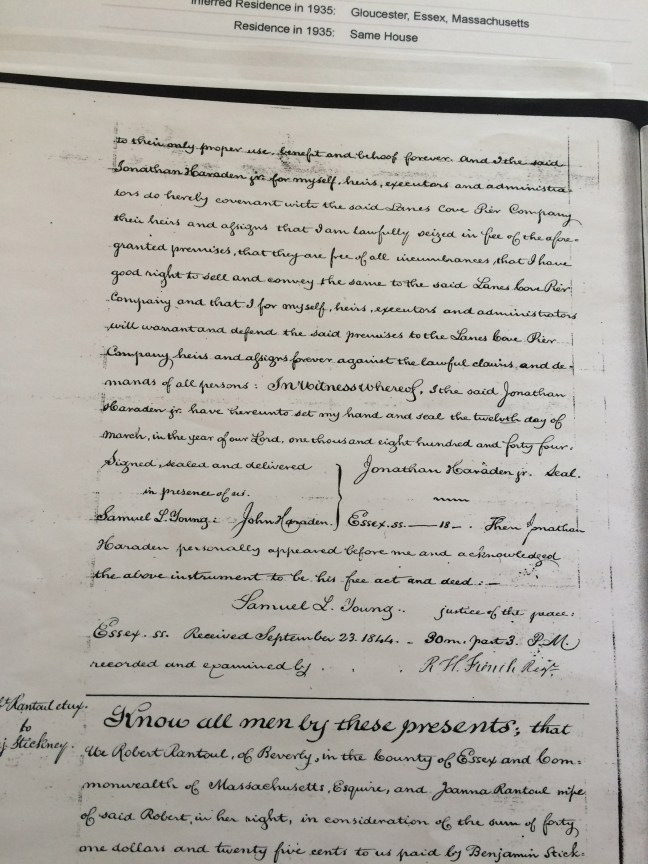 Inferred Residence in 1935: Gloucester, Essex, Massachusetts
Residence in 1935: Same House
to their only proper use, benefit and behoof forever. And I the said
Jonathan Haraden jr. for myself, heirs, executors and administra
tors do hereby covenant with the said Lanes Cove Pier Company
their heirs and assigns that I am lawfully seized in fee of the afore=
granted premises, that they are free of all incumbrances, that I have
good right to sell and convey the same to the said Lanes Cove Pier
Company and that I for myself, heirs, executors and administrators
will warrant and defend the said premises to the Lanes Cove Pier
Company heirs and assigns forever against the lawful claims and de=
mands of all persons: In Witness whereof, I the said Jonathan
Haraden jr. have hereunto set my hand and seal the twelvth day of
March, in the year of our Lord, one thousand eight hundred and forty four.
Signed, sealed and delivered } Jonathan Haraden jr. Seal.
in presence of us.
Samuel L. Young: John Haraden. Essex. ss. — 18 — . Then Jonathan
Haraden personally appeared before me and acknowledged
the above instrument to be his free act and deed: —
Samuel L. Young.. justice of the peace:
Essex. ss. Received September 23. 1844. — 30 m. past 3. P.M.
recorded and examined by . . . R. H. French Regr.
Rantoul et ux.
to
j. Stickney.
Know all men by these presents; that
We Robert Rantoul, of Beverly, in the County of Essex and Com=
monwealth of Massachusetts, Esquire, and Joanna Rantoul wife
of said Robert, in her right, in consideration of the sum of forty
one dollars and twenty five cents to us paid by Benjamin Stick=